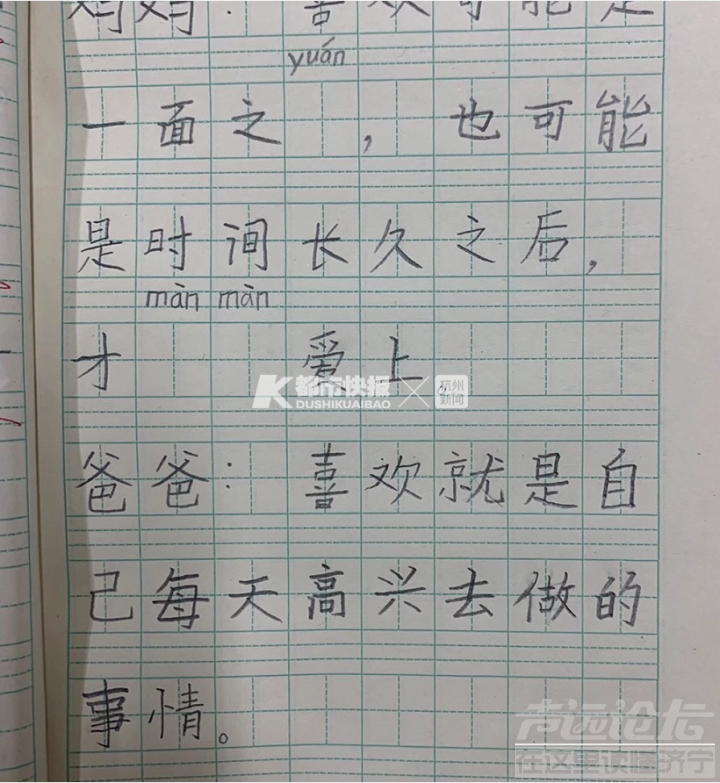 妈妈：喜欢可能是
yuán
一面之，也可能
是时间长久之后，
màn màn
才 爱上。
爸爸：喜欢就是自
己每天高兴去做的
事情。
都市快报
DUSHIKUAIBAO
杭州
新闻
声远论坛
在这里读懂济宁